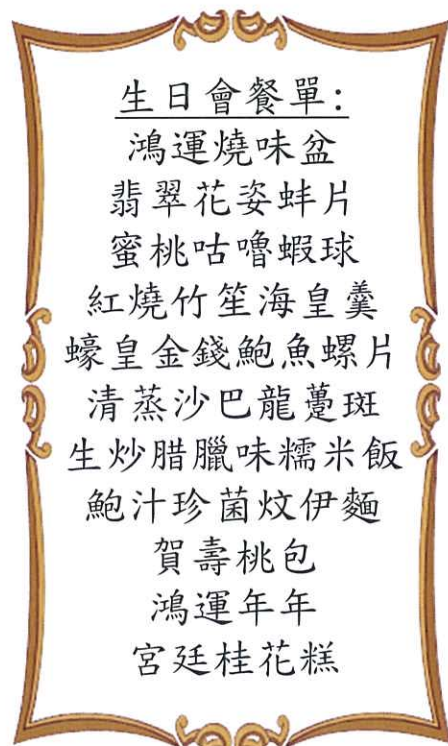 生日會餐單:
鴻運燒味盆
翡翠花姿蚌片
蜜桃咕嚕蝦球
紅燒竹笙海皇羹
蠔皇金錢鮑魚螺片
清蒸沙巴龍躉斑
生炒腊臘味糯米飯
鮑汁珍菌炆伊麵
賀壽桃包
鴻運年年
宮廷桂花糕